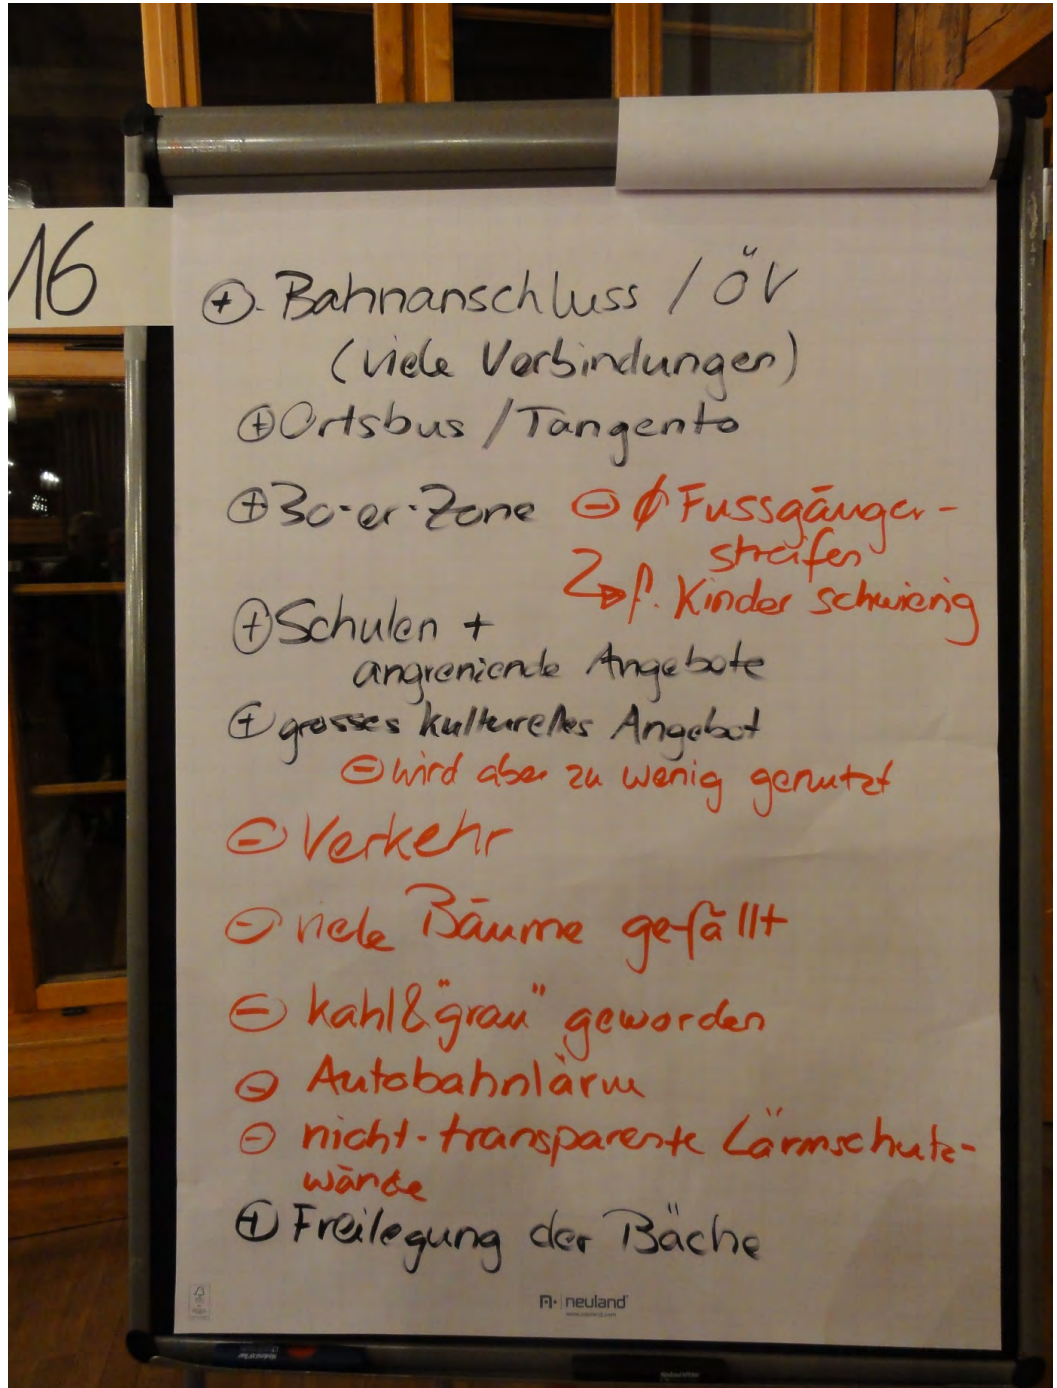 16
⊕ Bahnanschluss / ÖV
(viele Verbindungen)
⊕ Ortsbus / Tangento
⊕ 30-er-Zone ⊖ ∅ Fussgänger-
streifen
↳ f. Kinder schwierig
⊕ Schulen +
angrenzende Angebote
⊕ grosses kulturelles Angebot
⊖ wird aber zu wenig genutzt
⊖ Verkehr
⊖ viele Bäume gefällt
⊖ kahl & "grau" geworden
⊖ Autobahnlärm
⊖ nicht-transparente Lärmschutz-
wände
⊕ Freilegung der Bäche
neuland